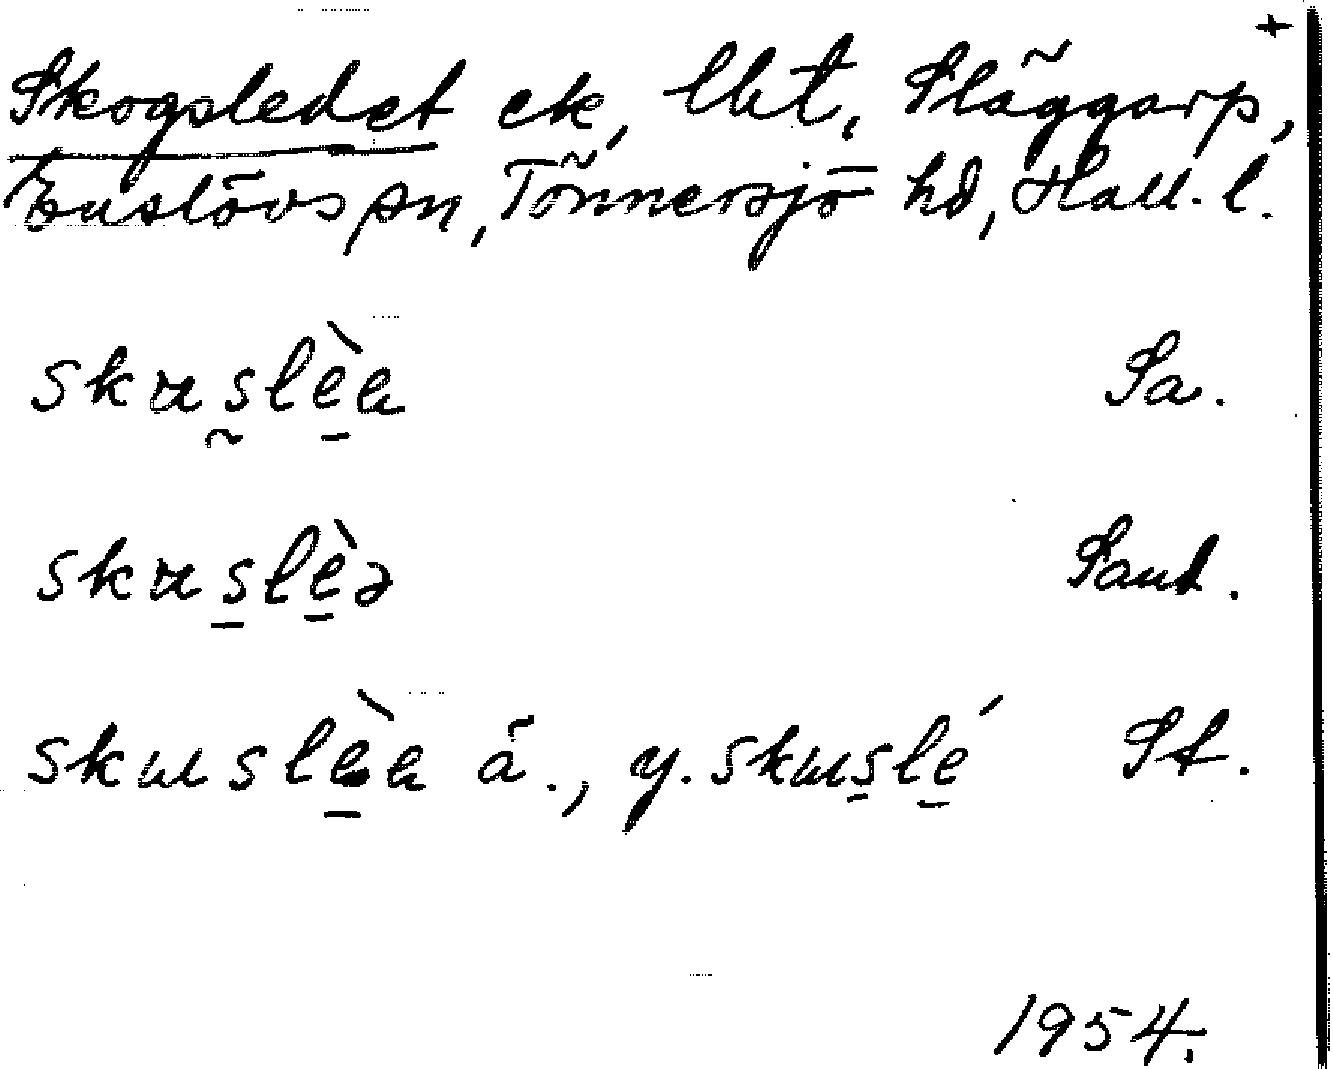 +
Skogsledet ek, lht, Släggarp,
Enslövs sn, Tönnersjö hd, Hall. l.
skuslèa Sa.
skuslèə Sand.
skuslèa ä., y. skuslé St.
1954.